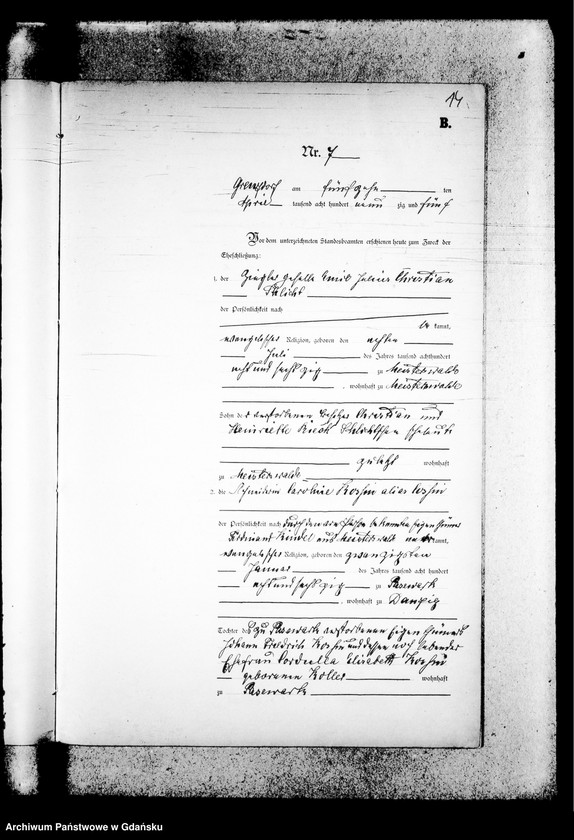 14.
B.
Nr. 7
am fünfzehn ten
April tausend acht hundert neun zig und fünf
Vor dem unterzeichneten Standesbeamten erschienen heute zum Zweck der
Eheschließung:
1. der Ziegler geselle Emil Julius Christian
Schlicht
der Persönlichkeit nach
be kannt,
evangelischer Religion, geboren den achten
Juli des Jahres tausend achthundert
acht und sechszig zu Meisterswalde
, wohnhaft zu Meisterswalde
Sohn de verstorbenen Besitzer Christian und
Henriette Schlichtschen Eheleute
zuletzt wohnhaft
zu Meisterswalde
2. die Schneiderin Caroline Kossin alias Cossin
der Persönlichkeit nach durch den Eigenthümer
Ferdinand aus Meisterswalde kannt,
evangelischer Religion, geboren den zwanzigsten
Januar des Jahres tausend acht hundert
acht und sechszig zu Pasewark
, wohnhaft zu Danzig
Tochter des zu Pasewark verstorbenen Eigenthümers
Johann Friedrich Kossin und dessen noch lebender
Ehefrau Cordulla Elisabeth Kossin
geborenen Koller wohnhaft
zu Pasewark
Archiwum Państwowe w Gdańsku